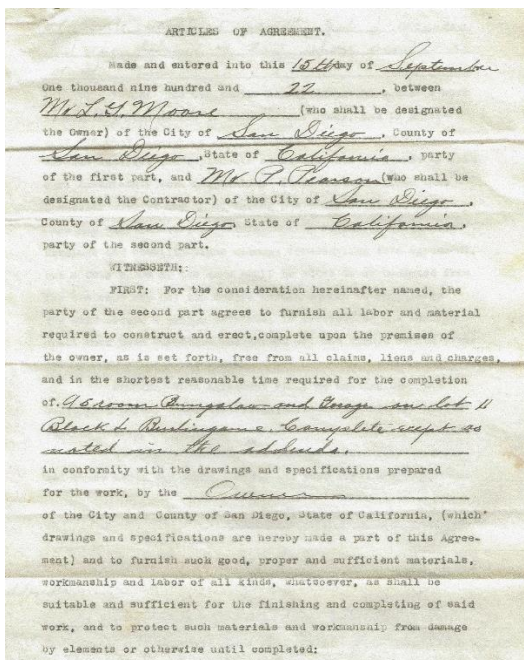 ARTICLES OF AGREEMENT.
Made and entered into this 15th day of September
One thousand nine hundred and 22, between
Mr L. Y. Moore (who shall be designated
the Owner) of the City of San Diego, County of
San Diego, State of California, party
of the first part, and Mr P. Pearson (who shall be
designated the Contractor) of the City of San Diego,
County of San Diego, State of California,
party of the second part.
WITNESSETH:
FIRST: For the consideration hereinafter named, the
party of the second part agrees to furnish all labor and material
required to construct and erect, complete upon the premises of
the owner, as is set forth, free from all claims, liens and charges,
and in the shortest reasonable time required for the completion
of, room Bungalow and Garage on lot 11
Block L Burlingame. Complete except as
noted in the addenda.
in conformity with the drawings and specifications prepared
for the work, by the Owner
of the City and County of San Diego, State of California, (which
drawings and specifications are hereby made a part of this Agree-
ment) and to furnish such good, proper and sufficient materials,
workmanship and labor of all kinds, whatsoever, as shall be
suitable and sufficient for the finishing and completing of said
work, and to protect such materials and workmanship from damage
by elements or otherwise until completed: